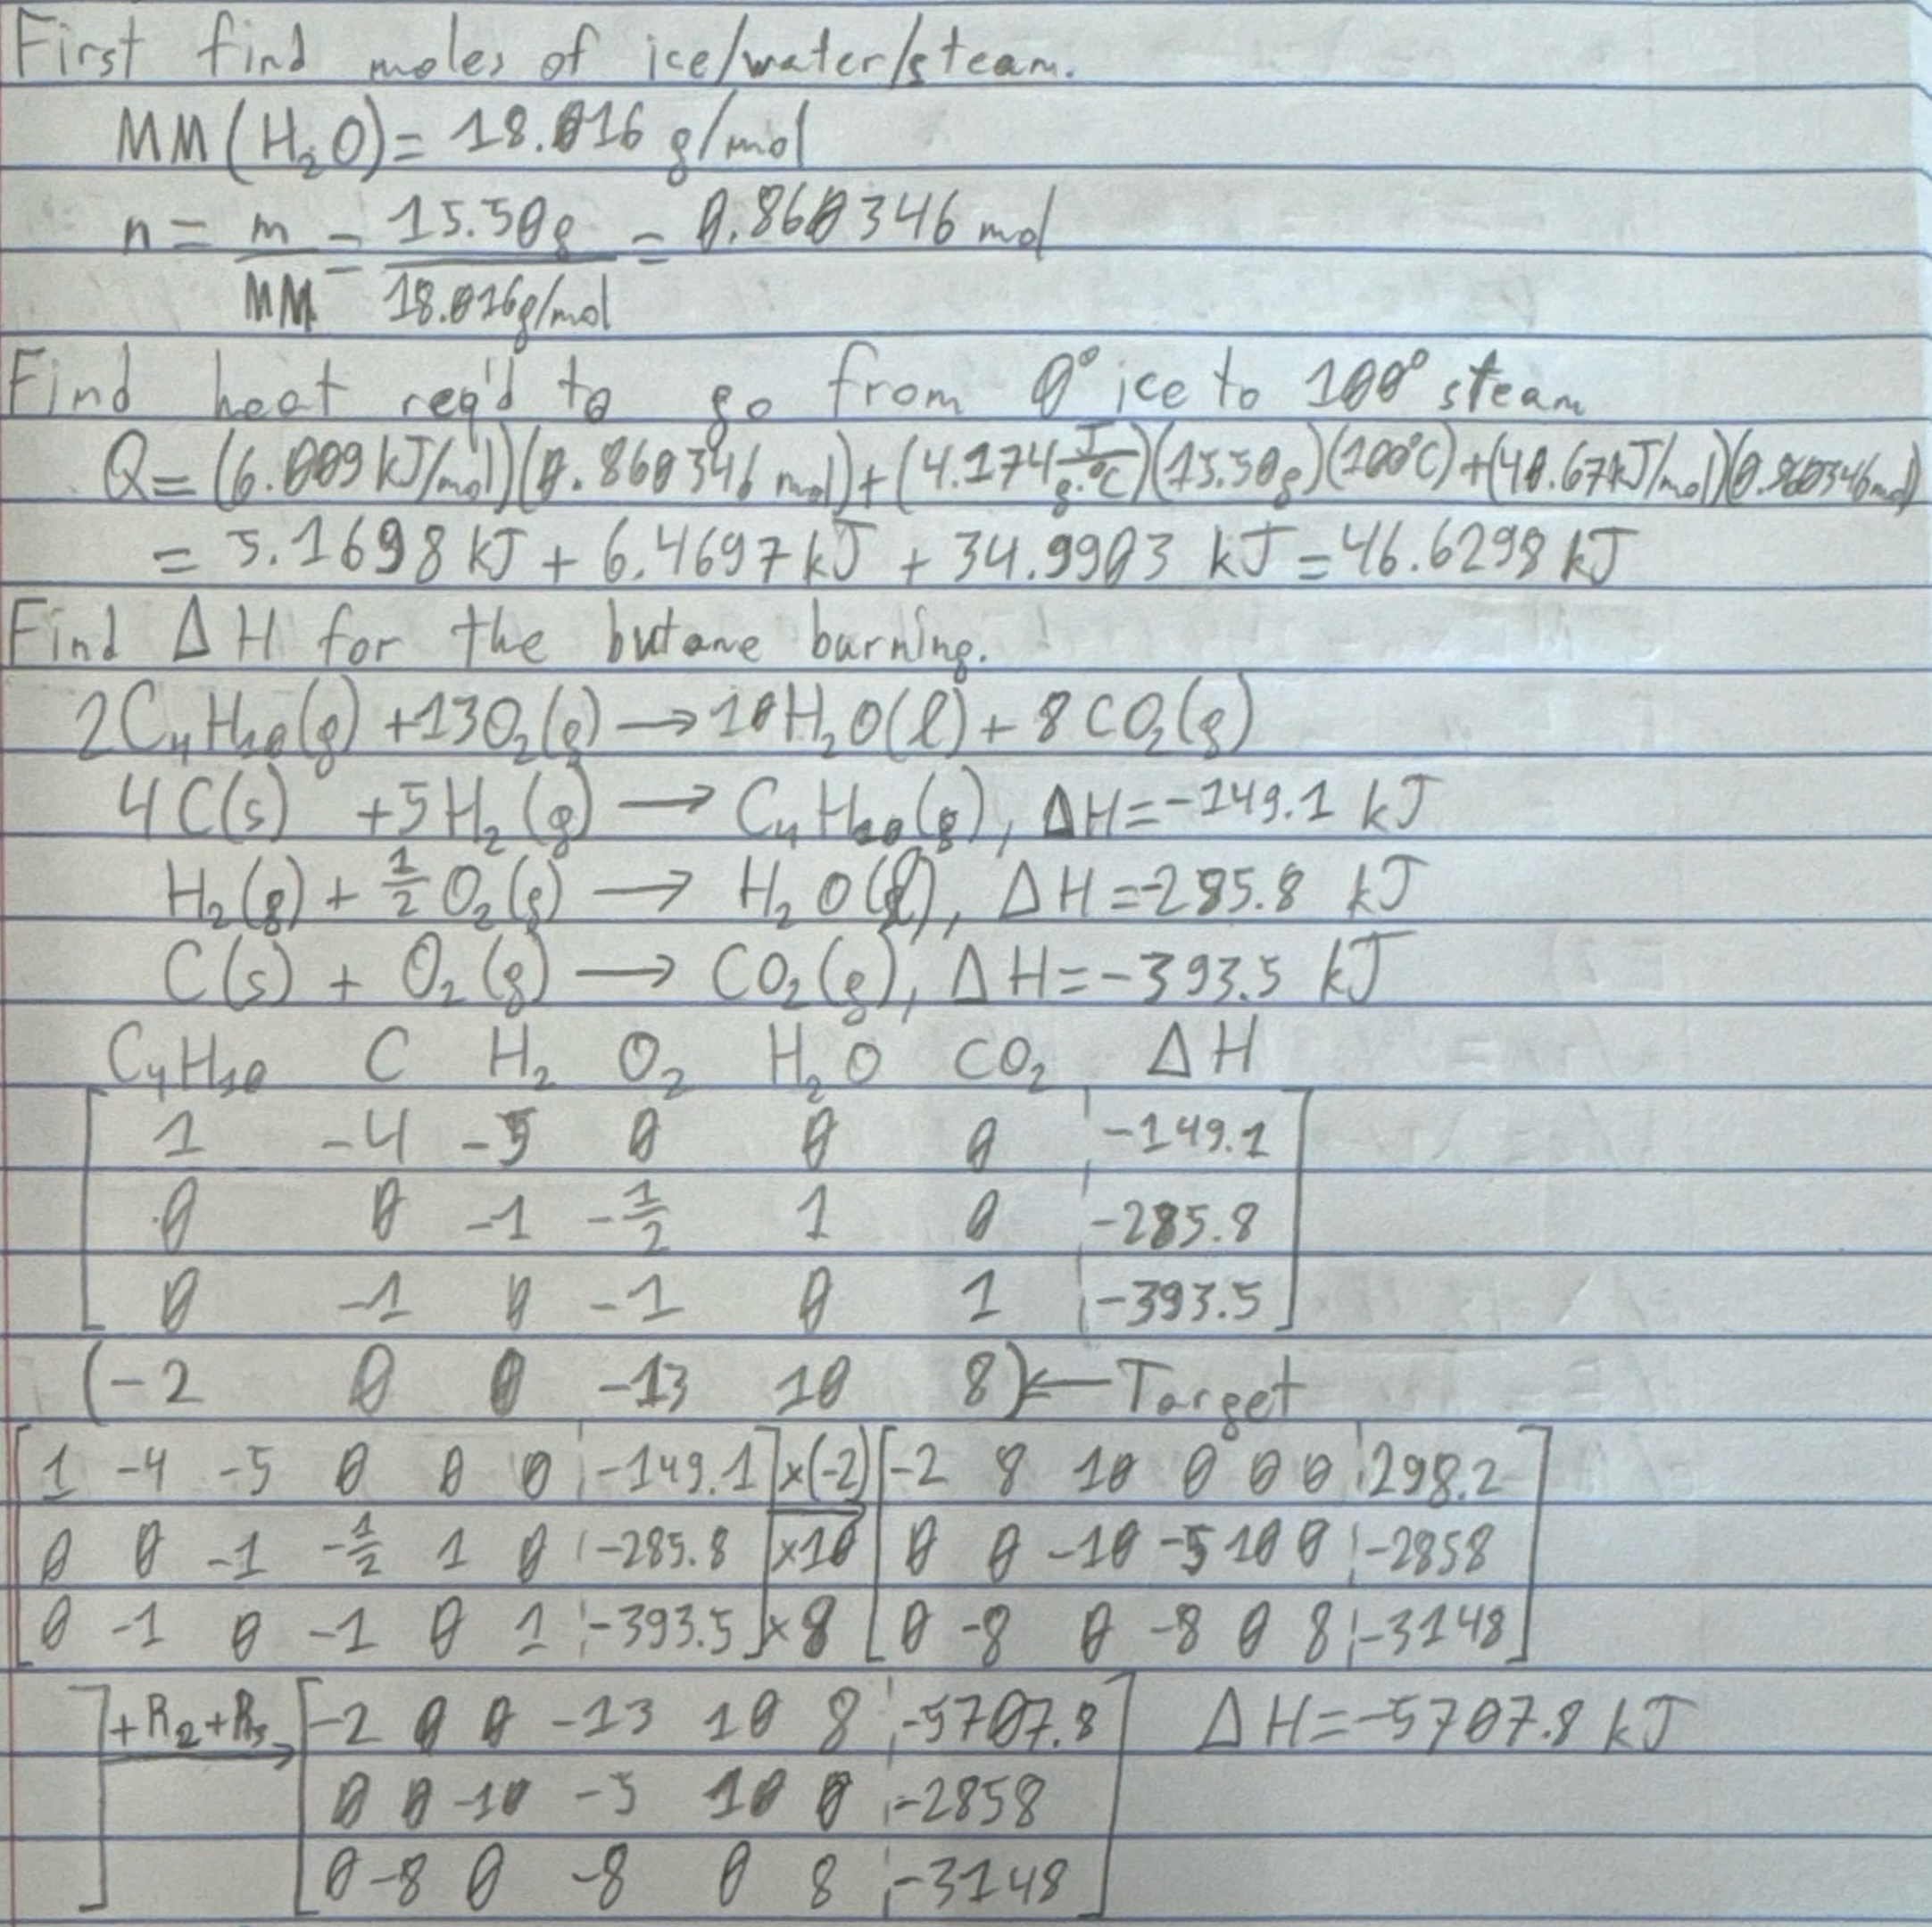 First find moles of ice/water/steam.
MM(H₂O)=18.016 g/mol
n = m/MM = 15.50g/18.016g/mol = 0.860346 mol
Find heat req'd to go from 0° ice to 100° steam
Q=(6.009 kJ/mol)(0.860346 mol)+(4.174 J/g·°C)(15.50g)(100°C)+(40.67kJ/mol)(0.860346mol)
= 5.1698 kJ + 6.4697 kJ + 34.9903 kJ = 46.6298 kJ
Find ΔH for the butane burning.
2C₄H₁₀(g) +13O₂(g) → 10H₂O(l) + 8CO₂(g)
4C(s) +5H₂(g) → C₄H₁₀(g), ΔH=-149.1 kJ
H₂(g) + 1/2 O₂(g) → H₂O(l), ΔH=-285.8 kJ
C(s) + O₂(g) → CO₂(g), ΔH=-393.5 kJ
C₄H₁₀ C H₂ O₂ H₂O CO₂ ΔH
[1 -4 -5 0 0 0 ¦ -149.1]
[0 0 -1 -1/2 1 0 ¦ -285.8]
[0 -1 0 -1 0 1 ¦ -393.5]
(-2 0 0 -13 10 8) ← Target
[1 -4 -5 0 0 0 ¦ -149.1] ×(-2) → [-2 8 10 0 0 0 ¦ 298.2]
[0 0 -1 -1/2 1 0 ¦ -285.8] ×10 [0 0 -10 -5 10 0 ¦ -2858]
[0 -1 0 -1 0 1 ¦ -393.5] ×8 [0 -8 0 -8 0 8 ¦ -3148]
] +R₂+R₃ → [-2 0 0 -13 10 8 ¦ -5707.8] ΔH=-5707.8 kJ
[0 0 -10 -5 10 0 ¦ -2858]
[0 -8 0 -8 0 8 ¦ -3148]